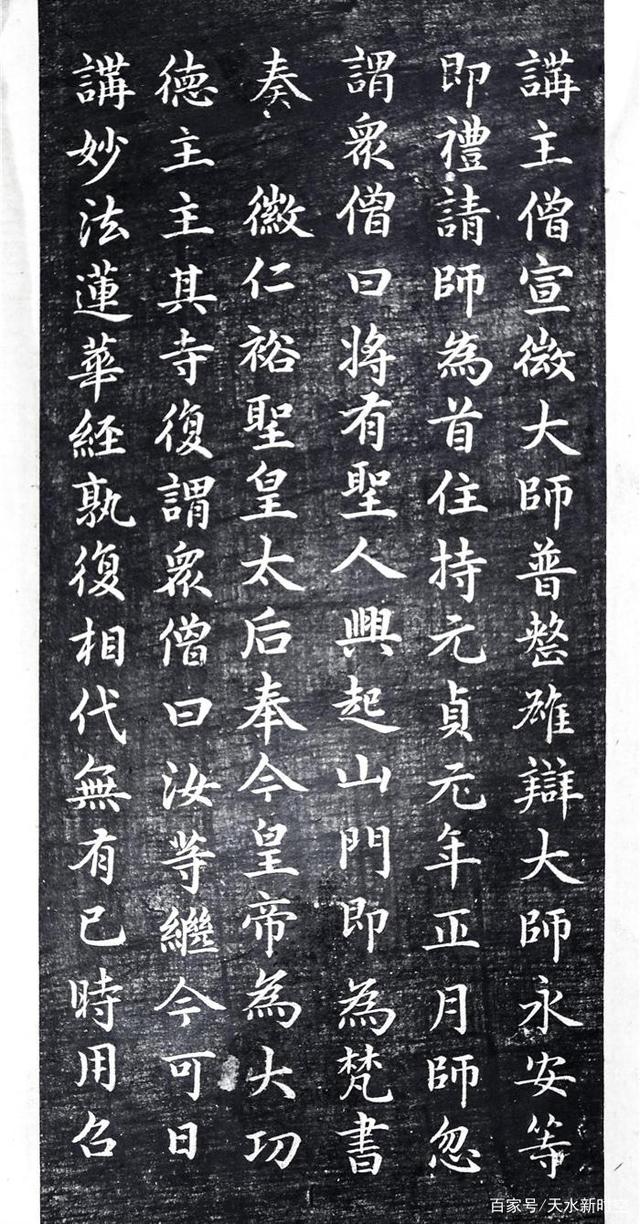 講主僧宣微大師普整雄辯大師永安等
即禮請師為首住持元貞元年正月師忽
謂眾僧曰將有聖人興起山門即為梵書
奏 徽仁裕聖皇太后奉今皇帝為大功
德主主其寺復謂眾僧曰汝等繼今可日
講妙法蓮華経孰復相代無有已時用召
百家号/天水新时